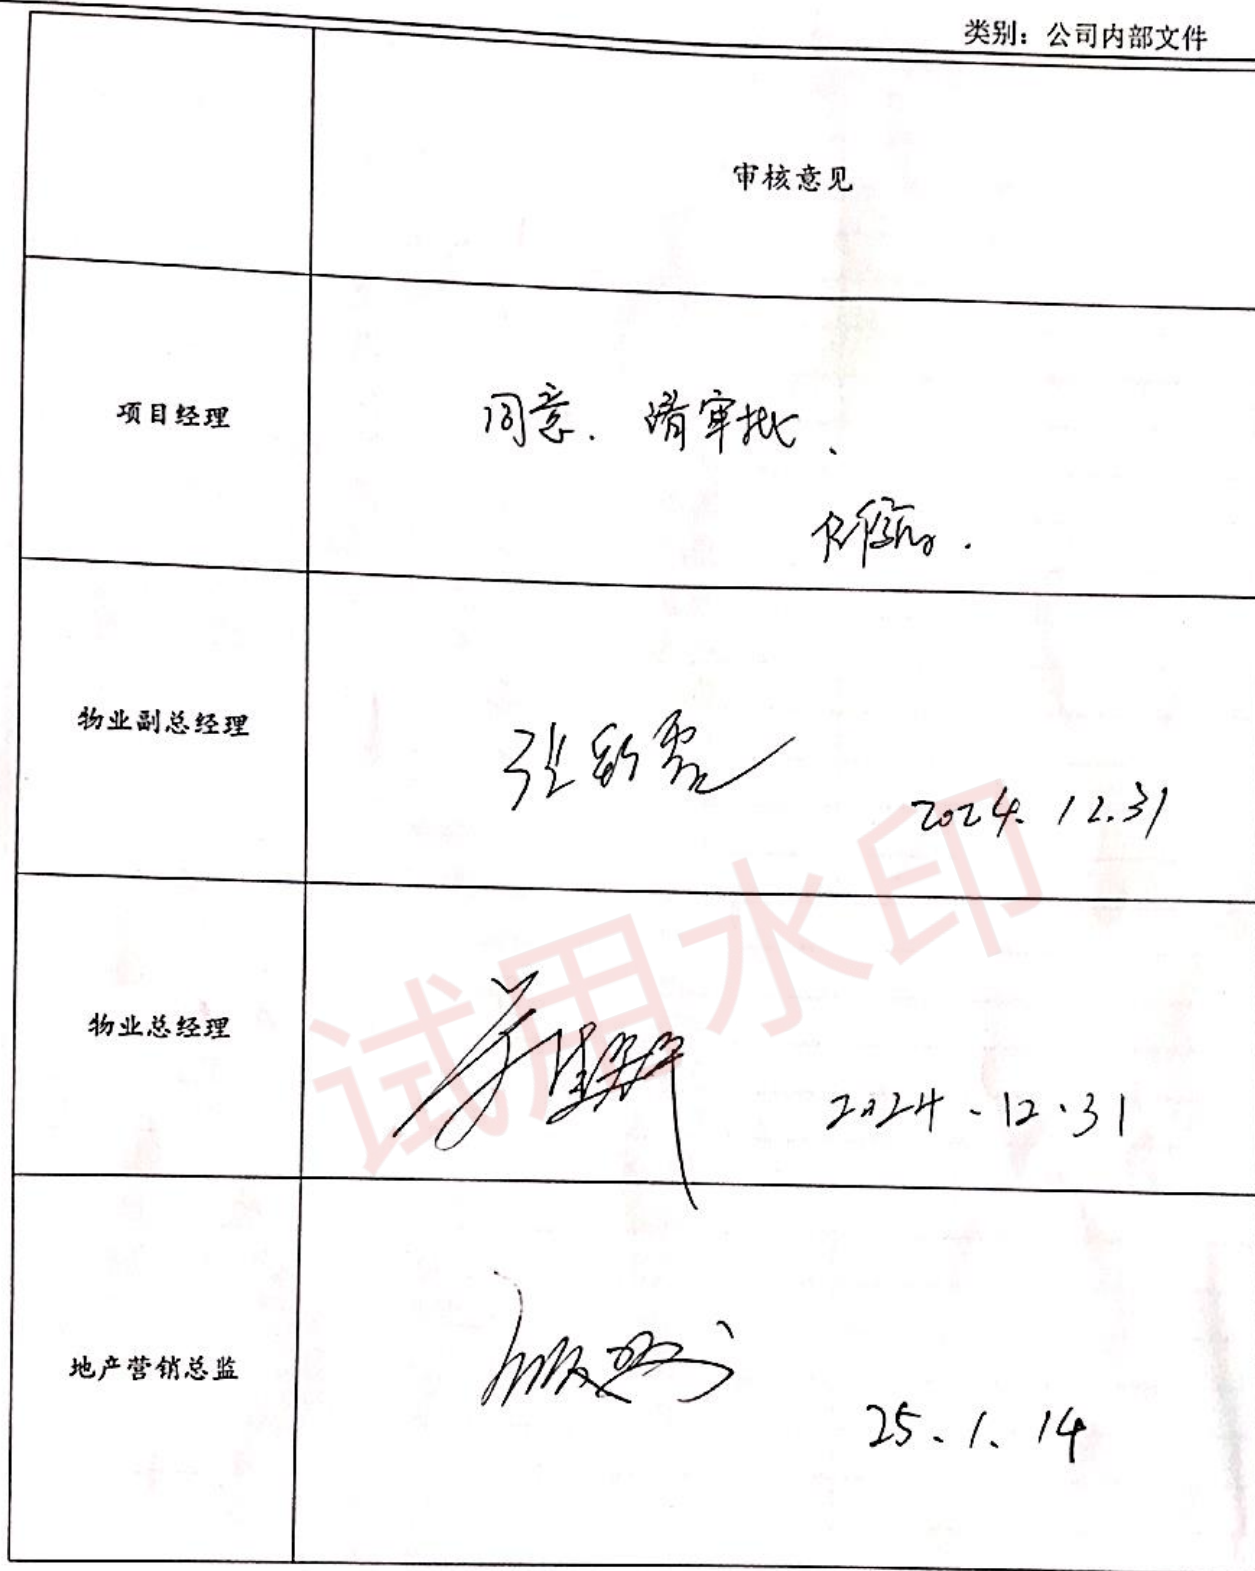 类别：公司内部文件
审核意见
项目经理
同意. 请审批、
物业副总经理
张
2024. 12.31
物业总经理
2024.12.31
地产营销总监
25.1.14
试用水印